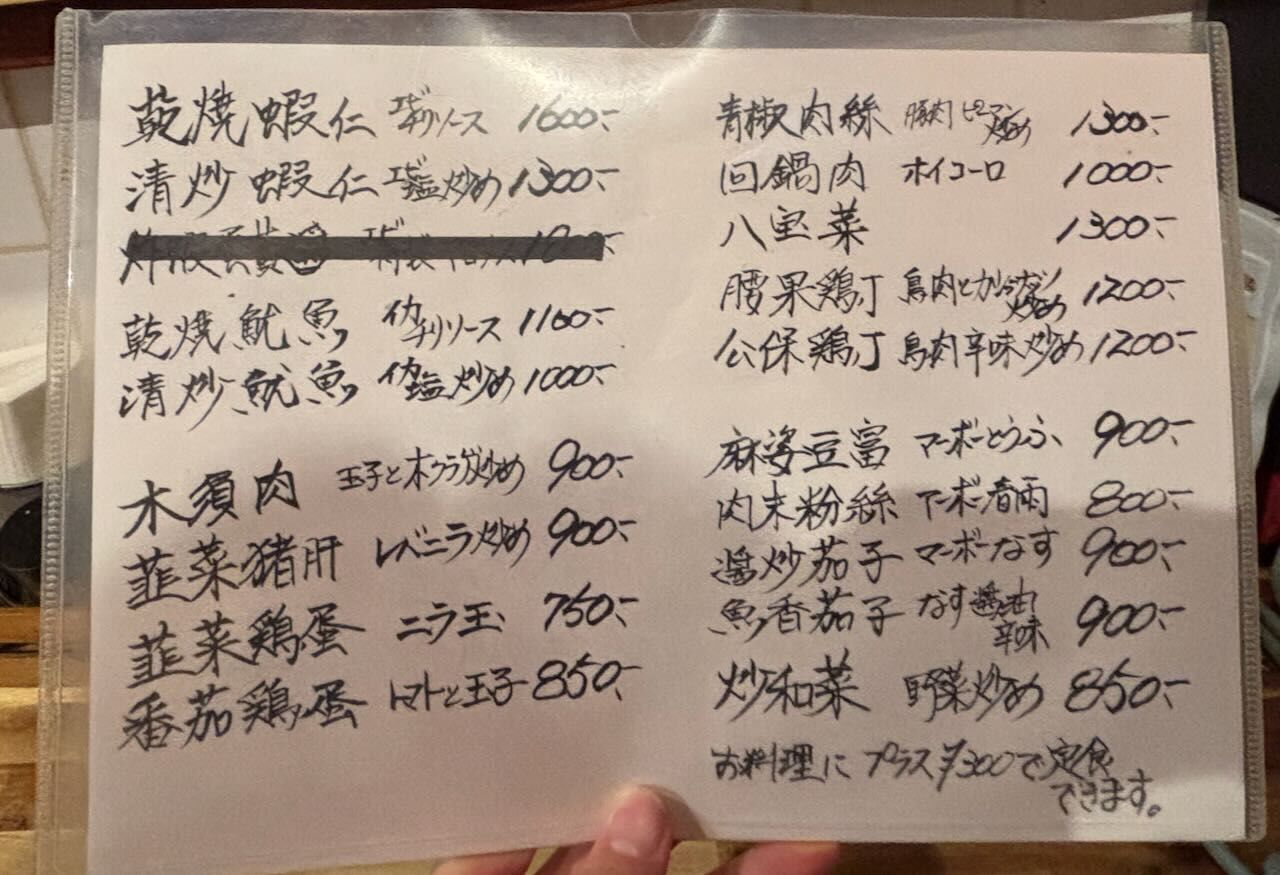 乾燒蝦仁 エビチリソース 1600.-
清炒蝦仁 エビ塩炒め 1300.-
乾燒魷魚 イカチリソース 1100.-
清炒魷魚 イカ塩炒め 1000.-
木須肉 玉子と木クラゲ炒め 900.-
韮菜猪肝 レバニラ炒め 900.-
韮菜鶏蛋 ニラ玉 750.-
番茄鶏蛋 トマトと玉子 850.-
青椒肉絲 豚肉ピーマン炒め 1300.-
回鍋肉 ホイコーロ 1000.-
八宝菜 1300.-
腰果鶏丁 鳥肉とカシューナッツ炒め 1200.-
公保鶏丁 鳥肉辛味炒め 1200.-
麻婆豆富 マーボーとうふ 900.-
肉末粉絲 マーボー春雨 800.-
醤炒茄子 マーボーなす 900.-
魚香茄子 なす醤油辛味 900.-
炒和菜 野菜炒め 850.-
お料理に プラス¥300で定食
できます。